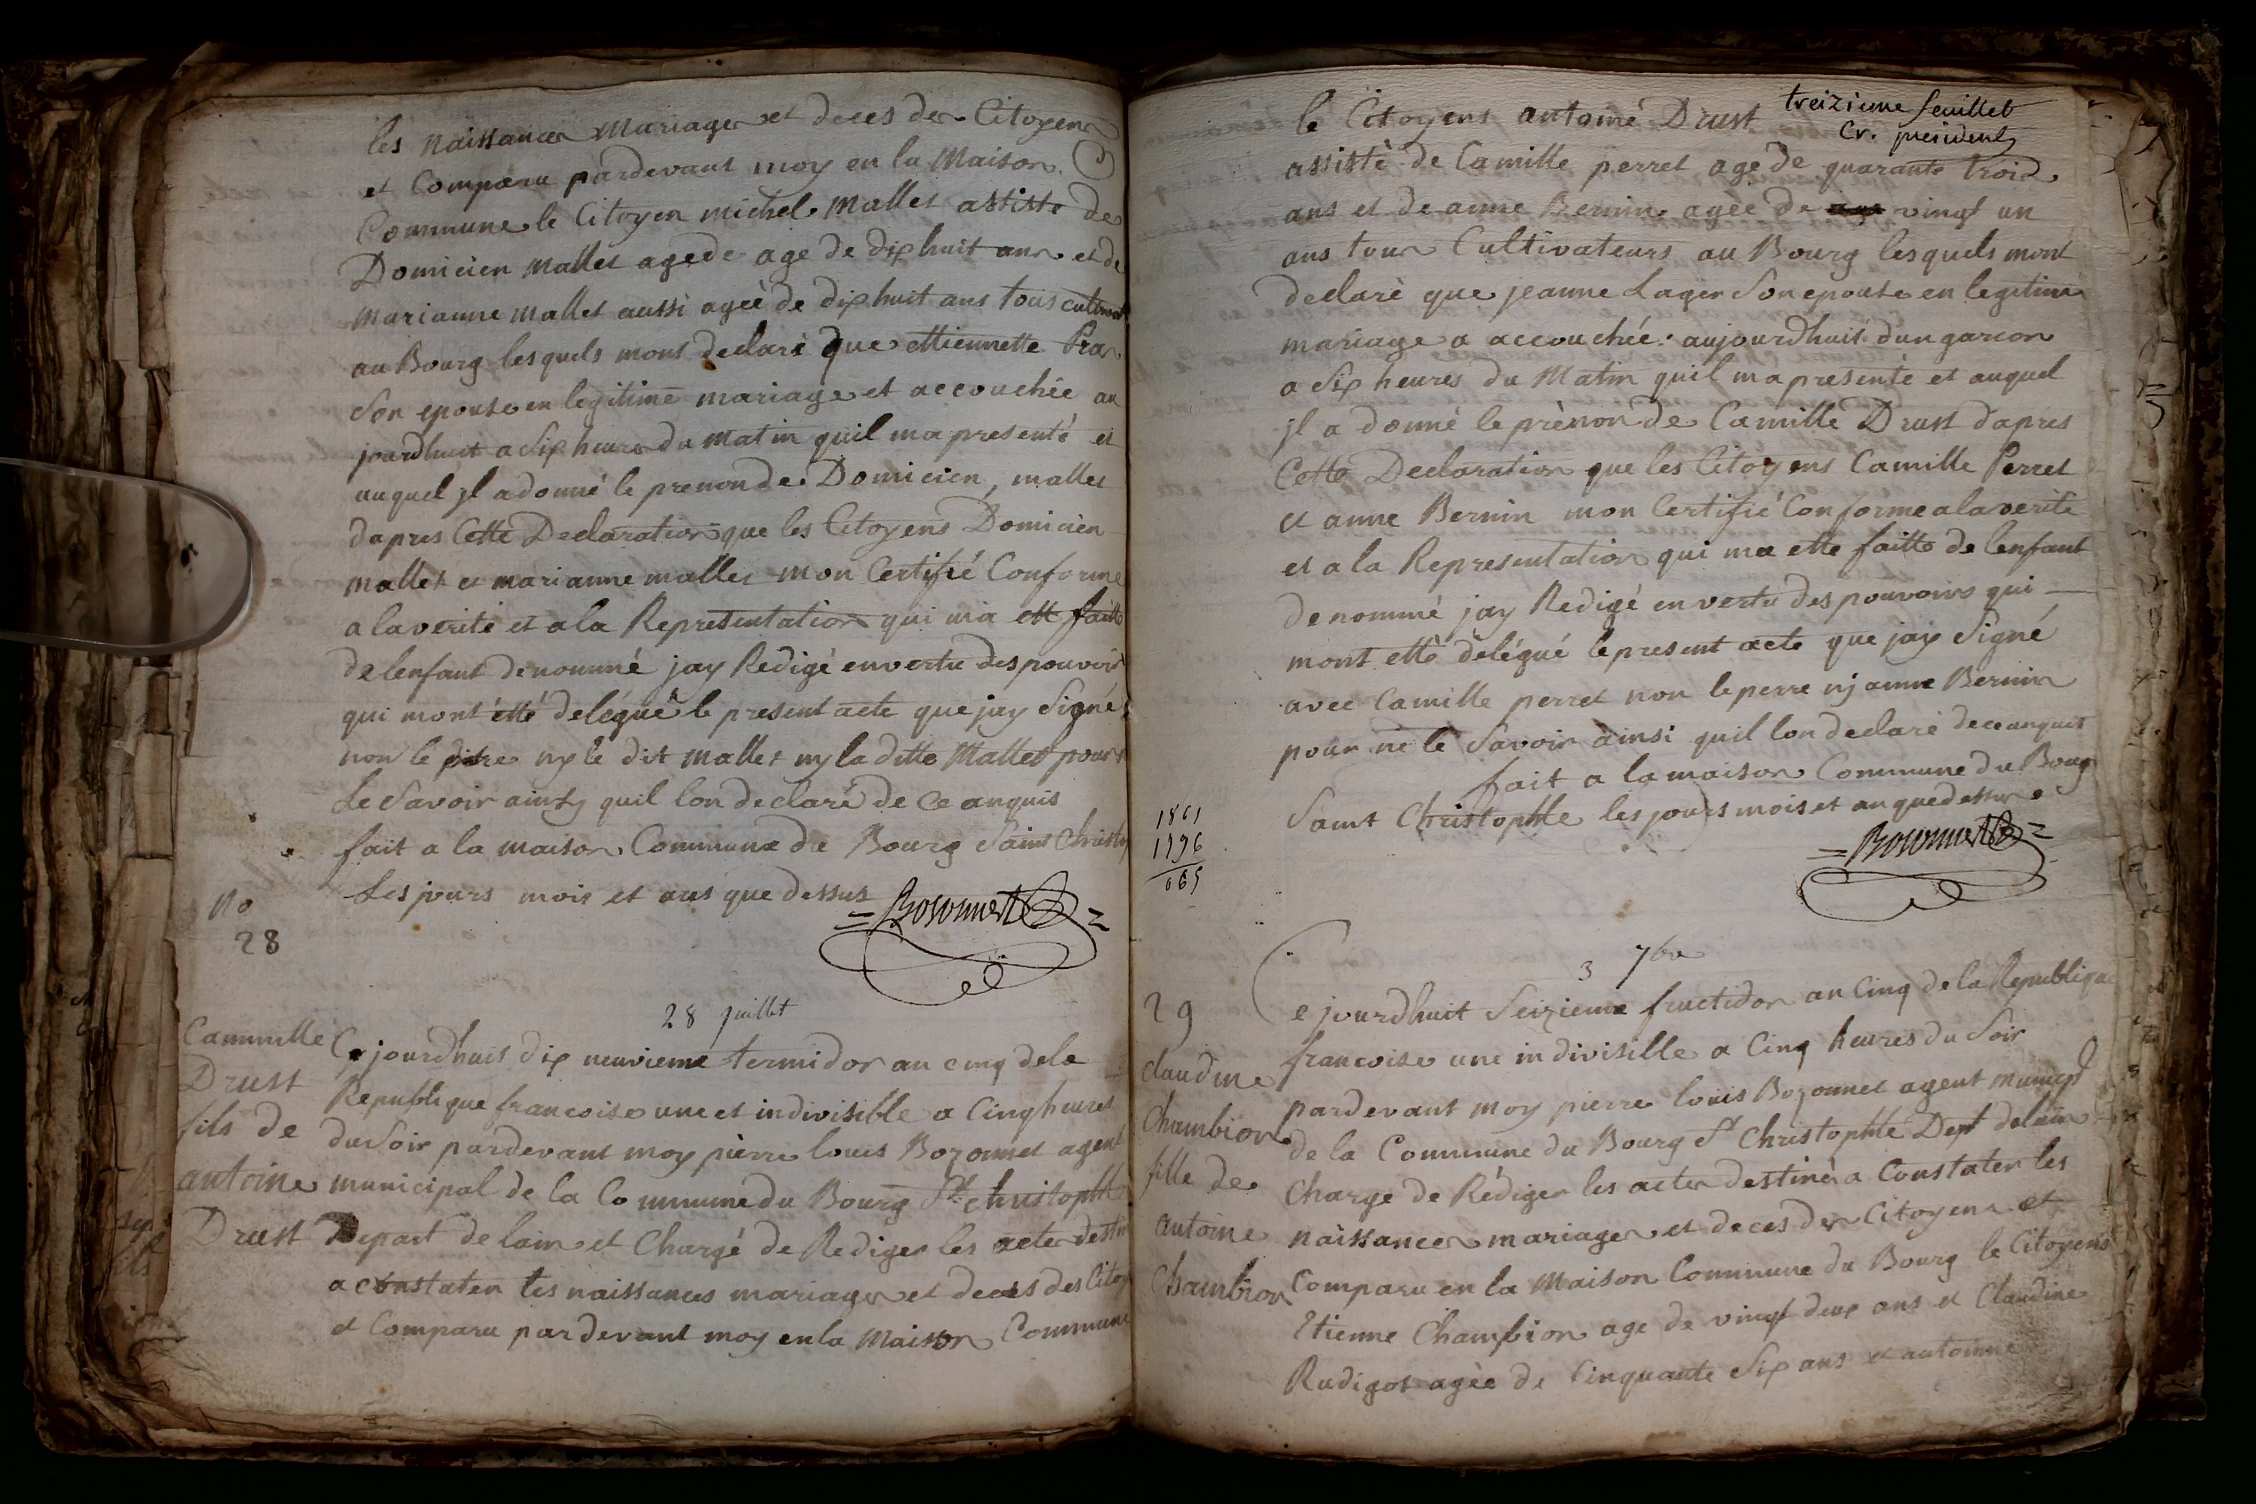 les naissances mariages et deces des Citoyens
et Comparu pardevant moy en la Maison
Commune le Citoyen michel mallet assiste de
Domicien mallet agede age de dix huit ans et de
marianne mallet aussi ageè de dix huit ans tous cultivat
au Bourg lesquels mont declarè que ettiennette Pra
Son epouse en legitime mariage et accouchée au
jourdhuit a Six heures du matin quil ma presenté et
auquel jl a donné le prenom de Domicien, mallet
dapres Cette Declaration que les Citoyens Domicien
mallet et marianne mallet mon Certifié Conforme
a la verité et a la Representation qui ma ette faitte
de lenfant denommé jay Redigè en vertu des pouvoir
qui mont étté delégué le present acte que jay Signé
non le pere ny le dit mallet ny la ditte Mallet pour
Le Savoir ainsy quil lon declaré de ce anquis
fait a la maison Commune du Bourg Saint Christo
Les jours mois et ans que dessus
= Bozonnet =
No
28
28 juillet
Cammille
Drust
fils de
antoine
Drust
Cejourdhuit dix neuvieme termidor an cinq dela
Republique francoise une et indivisible a Cinq heures
du Soir pardevant moy pièrre louis Bozonnet agent
municipal de la Commune du Bourg St christophle
Depart de lain et Chargé de Rediger les actes destin
a constater les naissances mariages et deces des Citoy
et Comparu pardevant moy en la Maison Commune
treizieme feuillet
Cr. president
le Citoyens antoine Drust
assistè de Camille perret age de quarante trois
ans et de anne Bernin ageè de vingt un
ans tous Cultivateurs au Bourg lesquels mont
declarè que jeanne Lager Son epouse en legitime
mariage a accouchée aujourdhuit dun garcon
a Six heures du Matin quil ma presentè et auquel
jl a donné le prènon de Camille Drust dapres
Cette Declaration que les Citoyens Camille Perret
et anne Bernin mon Certifié Conforme a la verite
et a la Representation qui ma ette faitte de lenfant
denommé jay Redigé en vertu des pouvoirs qui
mont etté delégué le present acte que jay Signé
avec Camille perret non le perre nj anne Bernin
pour ne le Savoir ainsi quil lon declarè de ce anquit
fait a la maison Commune du Bourg
Saint Christophle les jours mois et an que dessus
= Bozonnet =
1861
1796
065
3 7bre
29
claudine
Chambion
fille de
antoine
Chambion
Cejourdhuit Seizieme fructidor an Cinq de la Republique
francoise une indivisille a Cinq heures du Soir
pardevant moy pierre louis Bozonnet agent municipl
de la Commune du Bourg St Christophle Dept delain
Chargé de Rédiger les actes destinès a Constater les
naissances mariages et deces des Citoyens et
Comparu en la Maison Commune du Bourg le Citoyens
Etienne Chambion age de vingt deux ans et Claudine
Rudigos ageè de Cinquante Six ans et antoinne